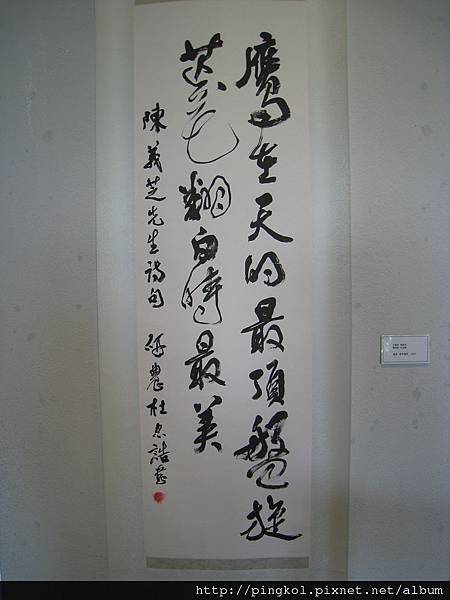 鷹在天的最頂盤旋
荻花翻白時最美
陳義芝先生詩句 研農杜忠誥
http://pingkol.pixnet.net/album